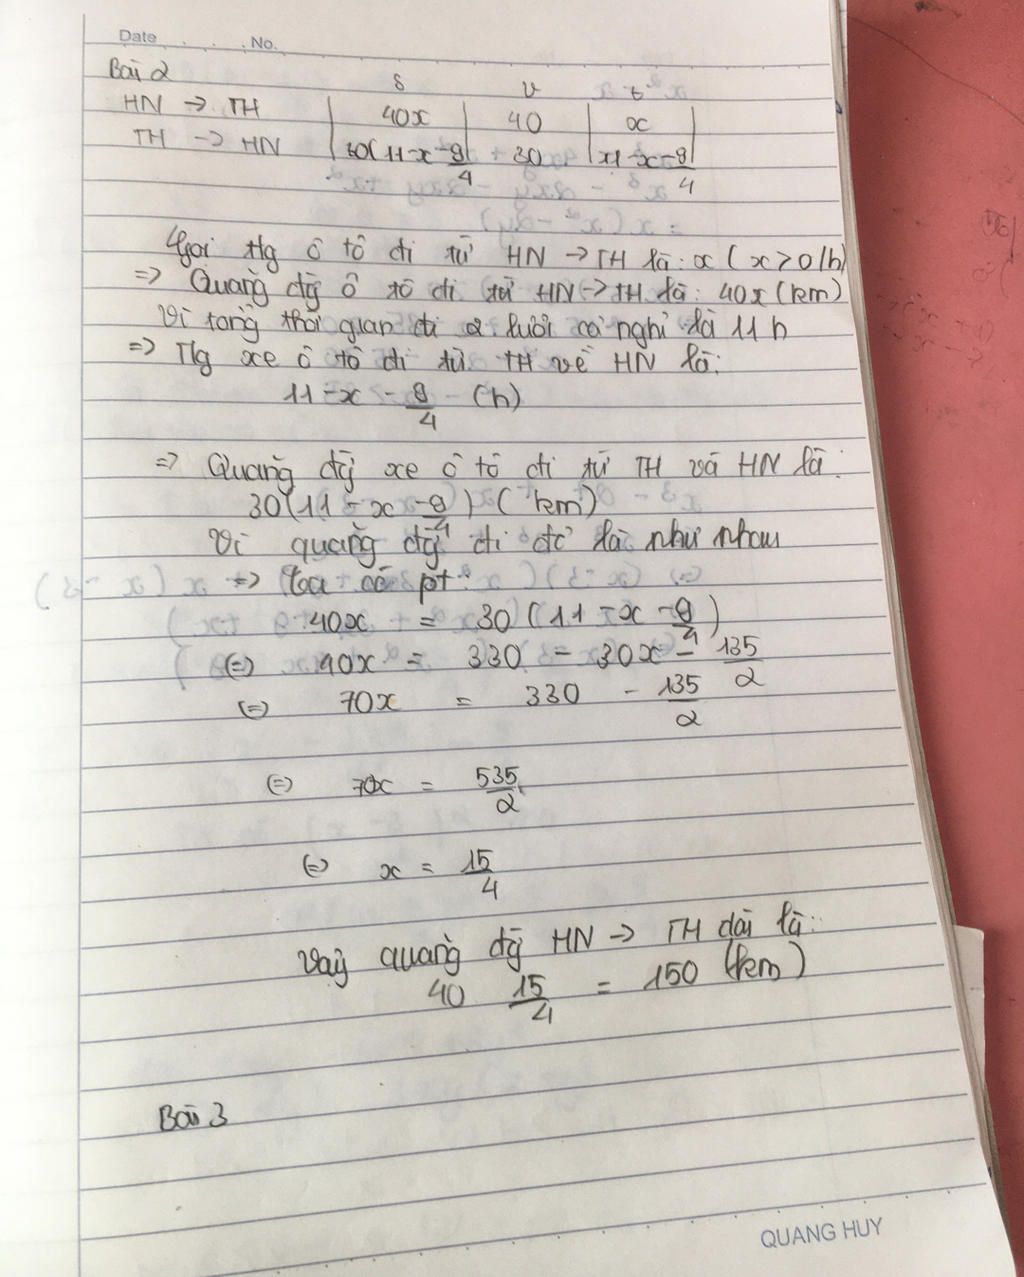 Date No.
Bài 2
S v t
HN → TH 40x 40 x
TH → HN 30(11-x-9/4 30 11-x-9/4
Gọi tg ô tô đi từ HN → TH là: x (x>0/h)
=> Quãng đg ô tô đi từ HN → TH là: 40x (km)
Vì tổng thời gian đi 2 lượt cả nghỉ là 11h
=> Tg xe ô tô đi từ TH về HN là:
11-x-9/4 (h)
=> Quãng đg xe ô tô đi từ TH và HN là:
30(11-x-9/4) (km)
Vì quãng đg đi đó là như nhau
=> ta có pt:
40x = 30(11-x-9/4)
(=) 40x = 330 - 30x - 135/2
(=) 70x = 330 - 135/2
(=) 70x = 535/2
(=) x = 15/4
Vậy quãng đg HN → TH dài là:
40 15/4 = 150 (km)
Bài 3
QUANG HUY